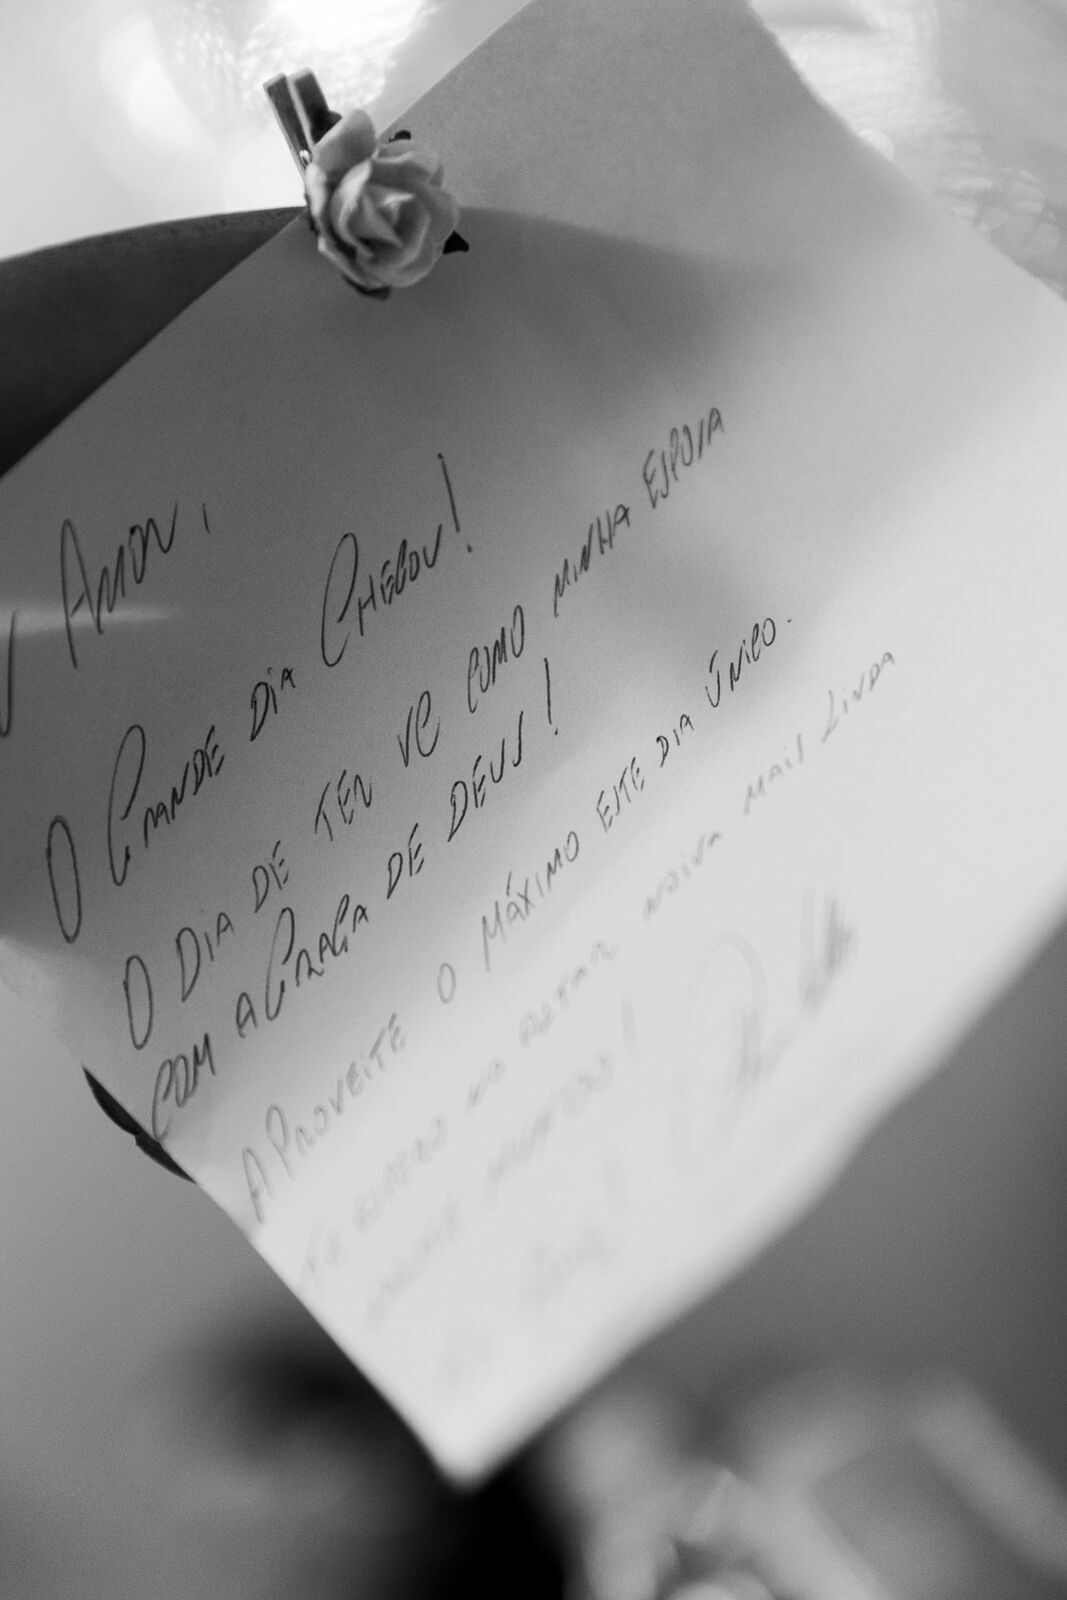 Amor,
O Grande dia Chegou!
O dia de ter vc como minha esposa
com a Graça de Deus!
Aproveite o máximo este dia único.
Te espero no altar noiva mais linda
deste mundo!